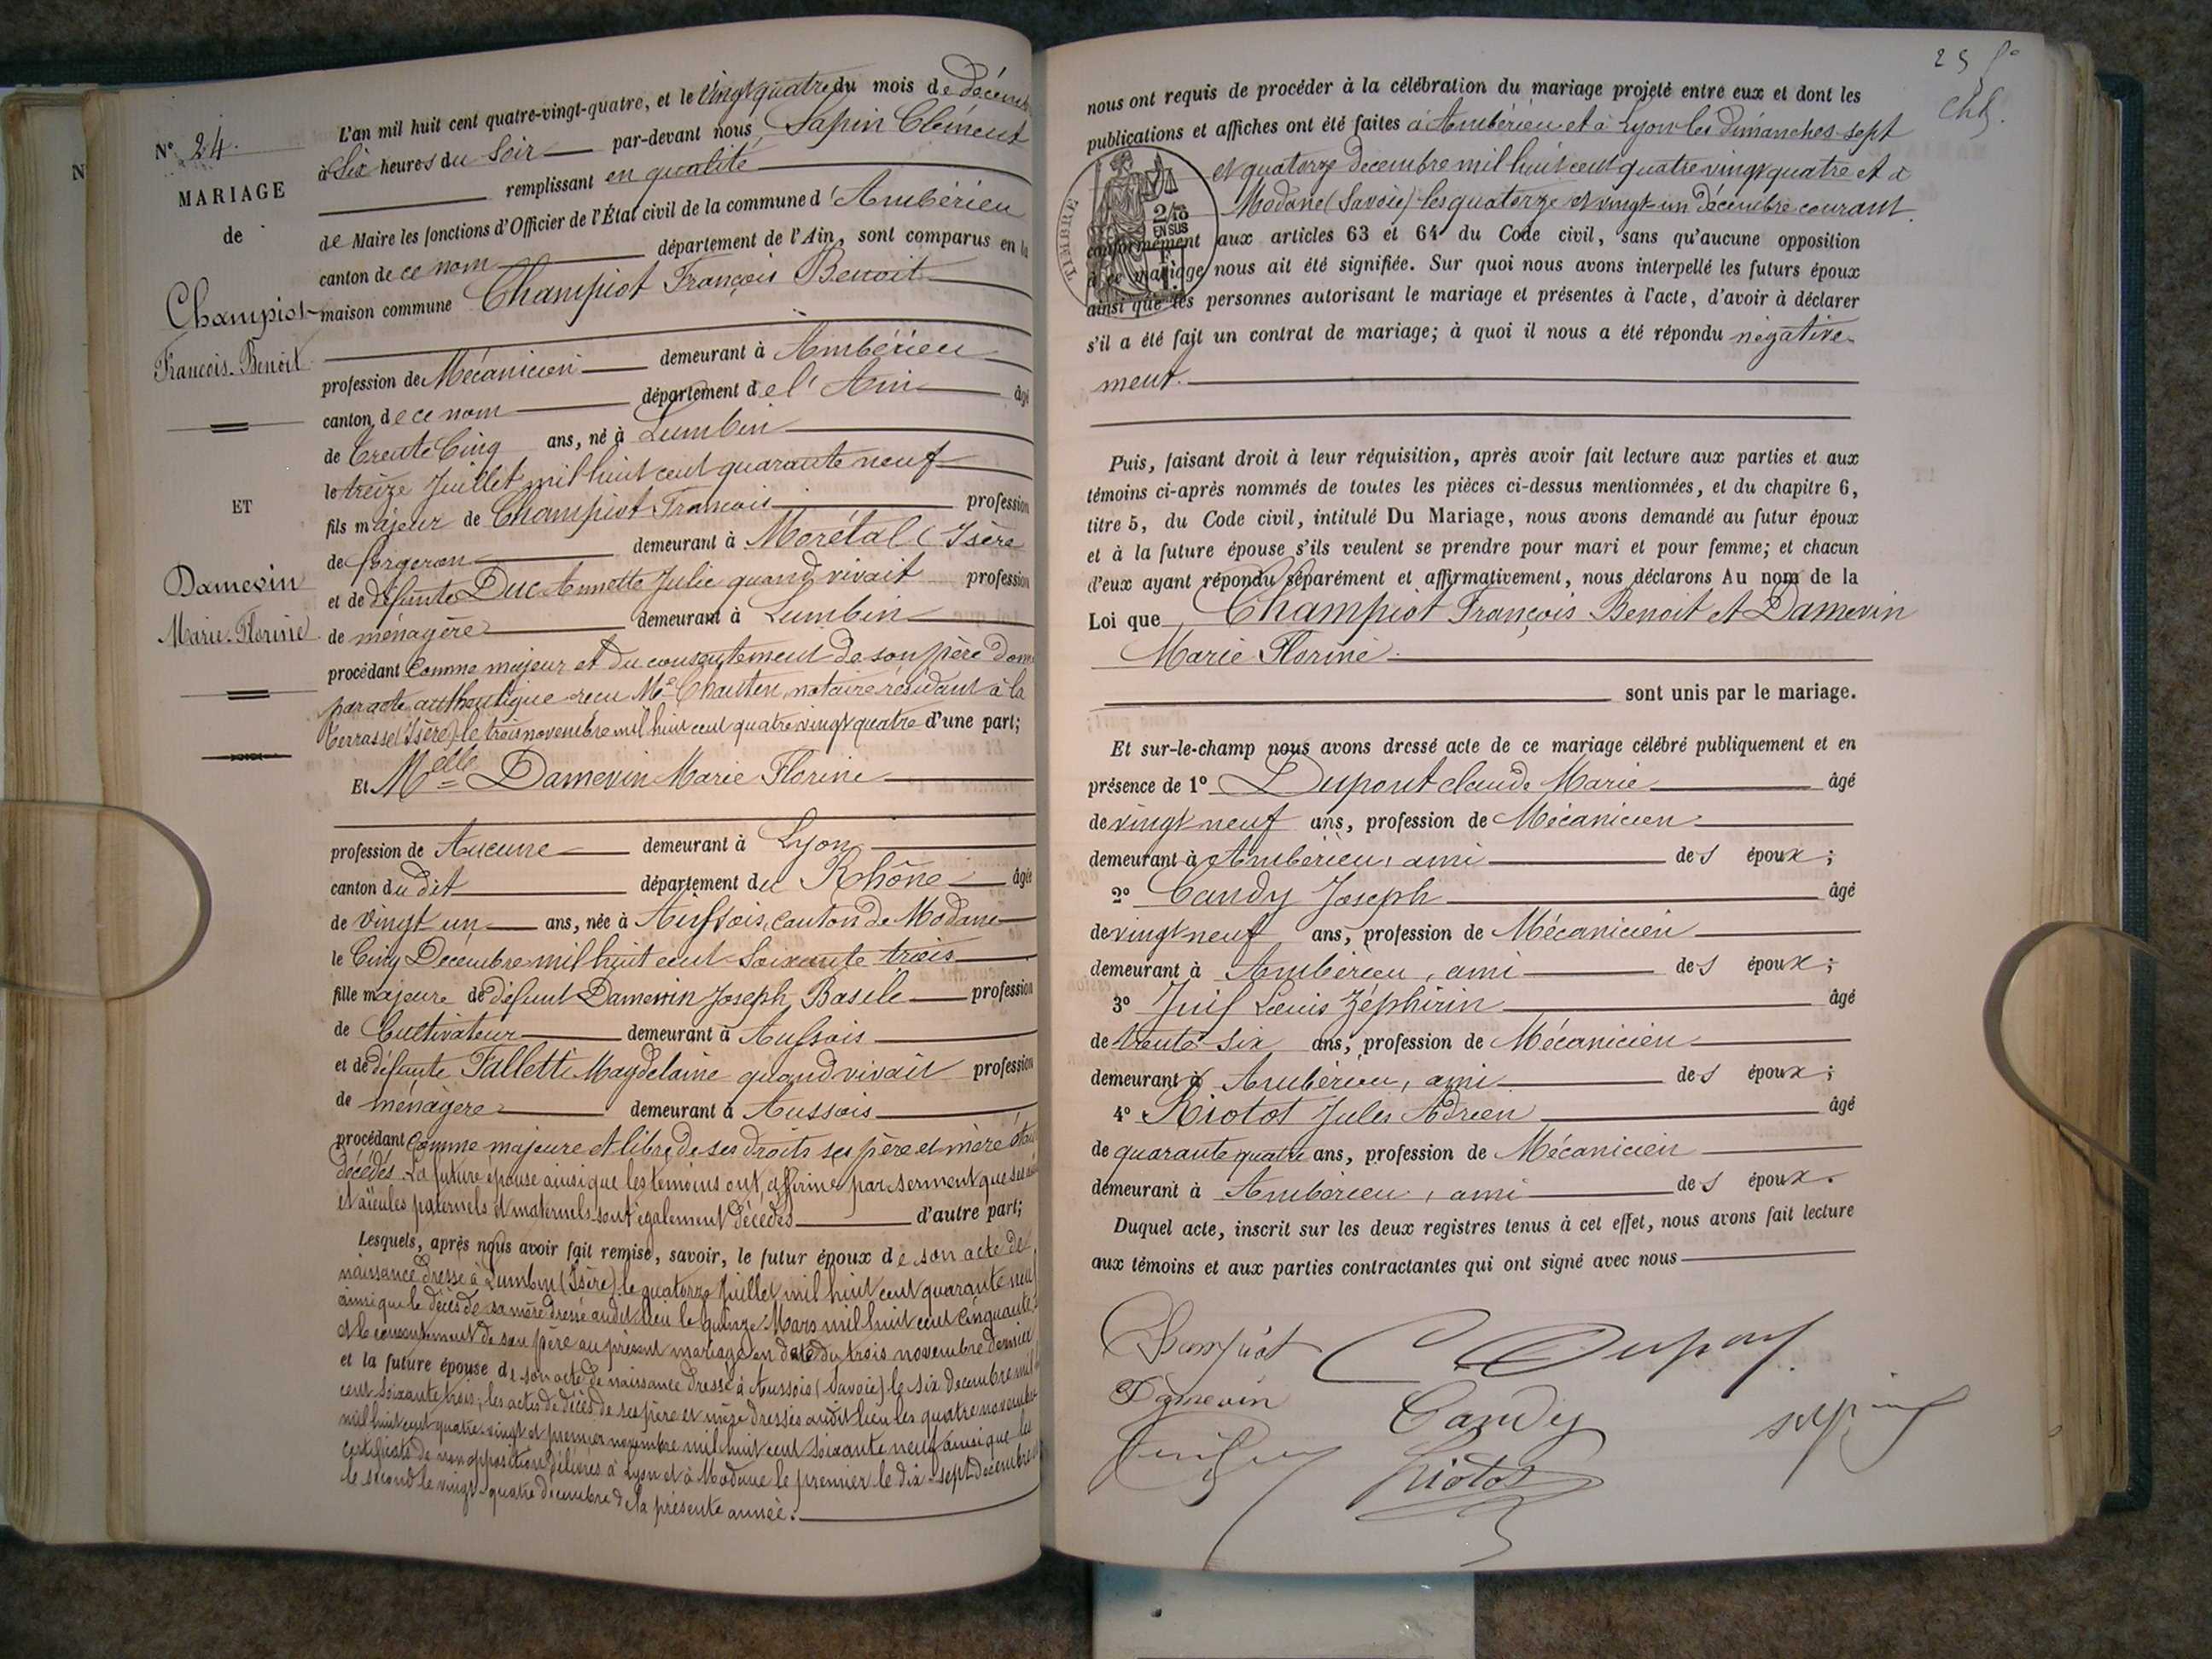 N° 24.
MARIAGE
de
Champiot
François-Benoit
ET
Damevin
Marie-Florine
L'an mil huit cent quatre-vingt-quatre, et le vingt quatre du mois de décem
à Six heures du Soir par-devant nous Sapin Clément
remplissant en qualité
de Maire les fonctions d'Officier de l'État civil de la commune d'Ambérieu
canton de ce nom département de l'Ain, sont comparus en la
maison commune Champiot François Benoit
profession de Mécanicien demeurant à Ambérieu
canton de ce nom département de l'Ain âgé
de trente Cinq ans, né à Lumbin
le treize Juillet mil huit cent quarante neuf
fils majeur de Champiot François profession
de forgeron demeurant à Morétal (Isère
et de défunte Duc Annette Julie quand vivait profession
de ménagère demeurant à Lumbin
procédant Comme majeur et du consentement de son père donné
par acte authentique reçu Me notaire résidant à la
terrasse (Isère) le trois novembre mil huit cent quatre vingt quatre d'une part;
Et Melle Damevin Marie Florine
profession de Aucune demeurant à Lyon
canton du dit département du Rhône âgée
de vingt un ans, née à Aussois, canton de Modane
le Cinq Décembre mil huit cent Soixante trois
fille majeure de défunt Damevin Joseph Basile profession
de Cultivateur demeurant à Aussois
et de défunte Falletti Magdelaine quand vivait profession
de ménagère demeurant à Aussois
procédant Comme majeure et libre de ses droits ses père et mère étant
décédés. La future épouse ainsi que les témoins ont affirmé par serment que ses
et aïeules paternels et maternels sont également décédés d'autre part;
Lesquels, après nous avoir fait remise, savoir, le futur époux de son acte de
naissance dressé à Lumbin (Isère) le quatorze juillet mil huit cent quarante neuf
ainsi que le décès de sa mère dressé audit lieu le quinze Mars mil huit cent cinquante
et le consentement de son père au présent mariage en date du trois novembre dernier
et la future épouse de son acte de naissance dressé à Aussois (Savoie) le six décembre mil
cent soixante trois; les actes de décès de ses père et mère dressés audit lieu les quatre novembre
mil huit cent quatre-vingt et premier novembre mil huit cent soixante neuf ainsi que les
certificats de non opposition délivrés à Lyon et à Modane le premier le dix-sept décembre
le second le vingt-quatre décembre de la présente année.
25
nous ont requis de procéder à la célébration du mariage projeté entre eux et dont les
publications et affiches ont été faites à Ambérieu et à Lyon les dimanches sept
et quatorze décembre mil huit cent quatre vingt quatre et à
Modane (Savoie) les quatorze et vingt-un décembre courant.
TIMBRE
2/10
EN SUS
conformément aux articles 63 et 64 du Code civil, sans qu'aucune opposition
à ce mariage nous ait été signifiée. Sur quoi nous avons interpellé les futurs époux
ainsi que les personnes autorisant le mariage et présentes à l'acte, d'avoir à déclarer
s'il a été fait un contrat de mariage; à quoi il nous a été répondu négative-
ment.
Puis, faisant droit à leur réquisition, après avoir fait lecture aux parties et aux
témoins ci-après nommés de toutes les pièces ci-dessus mentionnées, et du chapitre 6,
titre 5, du Code civil, intitulé Du Mariage, nous avons demandé au futur époux
et à la future épouse s'ils veulent se prendre pour mari et pour femme; et chacun
d'eux ayant répondu séparément et affirmativement, nous déclarons Au nom de la
Loi que Champiot François Benoit et Damevin
Marie Florine
sont unis par le mariage.
Et sur-le-champ nous avons dressé acte de ce mariage célébré publiquement et en
présence de 1° Dupont claude Marie âgé
de vingt neuf ans, profession de Mécanicien
demeurant à Ambérieu, ami des époux;
2° Candy Joseph âgé
de vingt neuf ans, profession de Mécanicien
demeurant à Ambérieu, ami des époux;
3° Juif Louis Zéphirin âgé
de trente six ans, profession de Mécanicien
demeurant à Ambérieu, ami des époux;
4° Riotot Jules Adrien âgé
de quarante quatre ans, profession de Mécanicien
demeurant à Ambérieu, ami des époux.
Duquel acte, inscrit sur les deux registres tenus à cet effet, nous avons fait lecture
aux témoins et aux parties contractantes qui ont signé avec nous
Champiot CDupont
Damevin Candy Sapin
Riotot